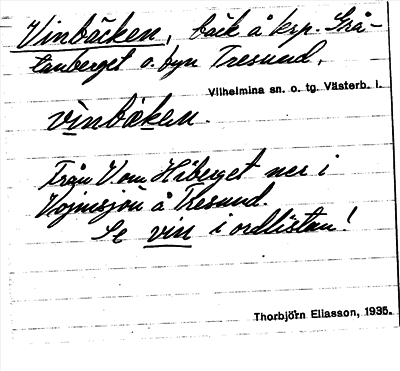 Vinbäcken, bäck å krp. Grå-
tanberget o. byn Tresund.
Vilhelmina sn. o. tg. Västerb. l.
vinbäken.
Från V om Håberget ner i
Vojmsjön å Tresund.
Se vin i ordlistan!
Thorbjörn Eliasson, 1935.